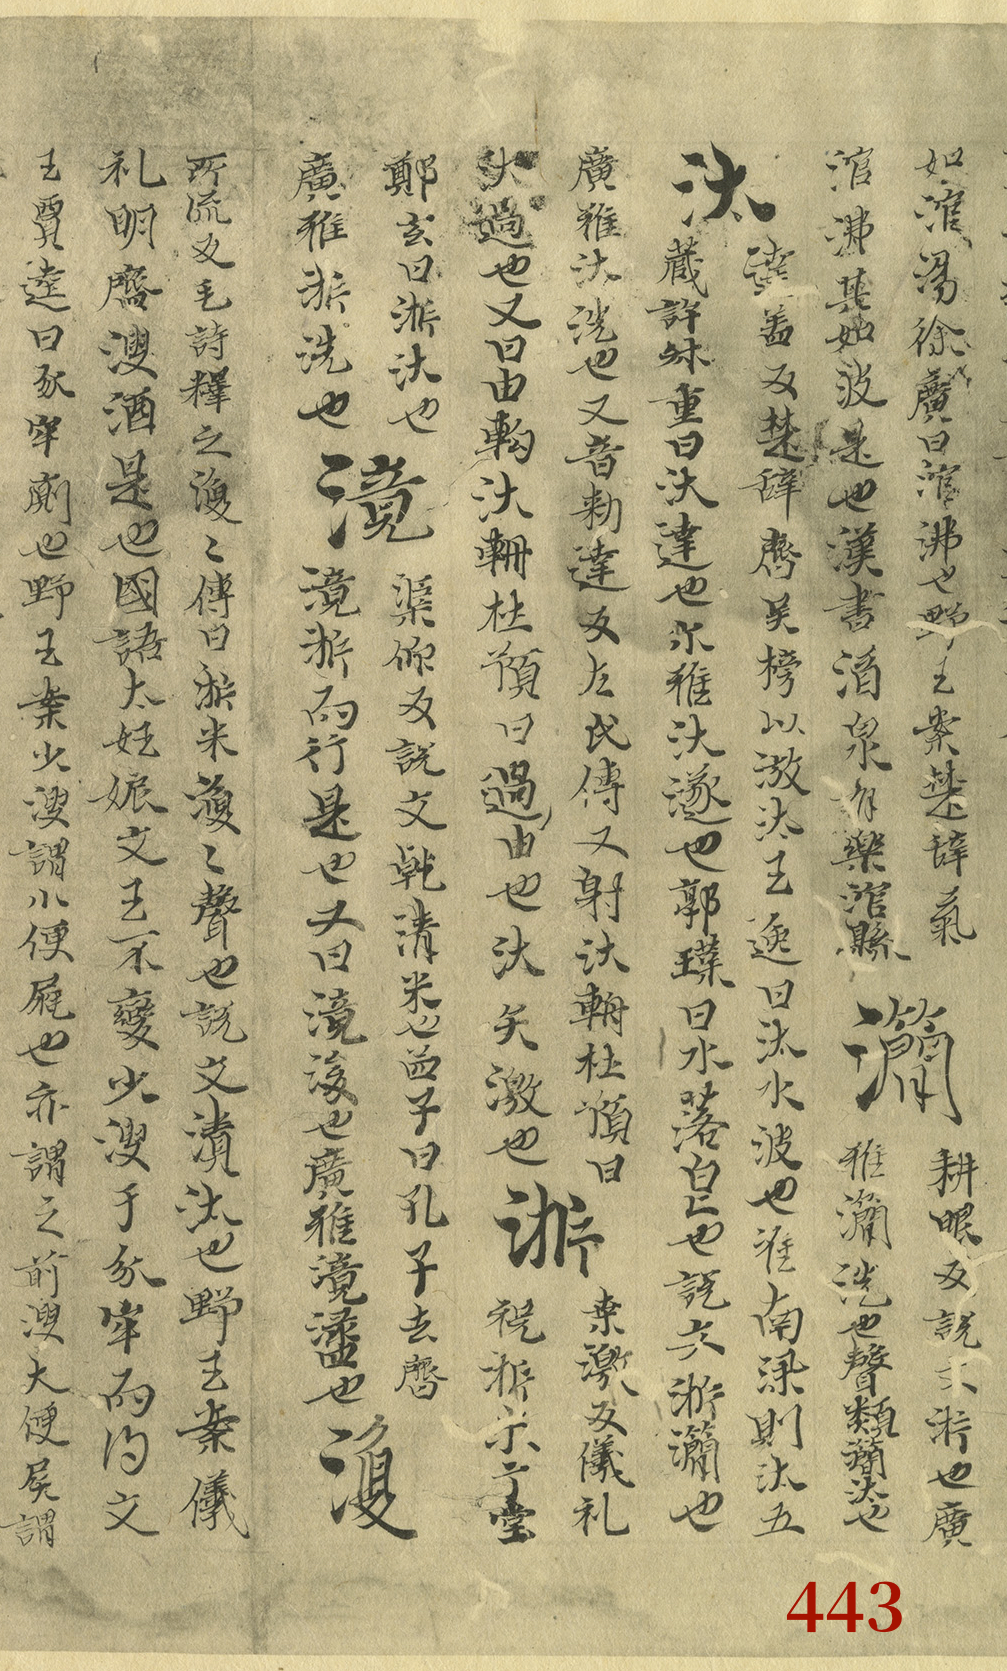 如涫湯徐廣曰涫沸也野王案楚辭氣
涫沸其如波是也漢書酒泉有樂涫縣
灡
耕眼反說文淅也廣
雅灡洗也聲類灡汏也
汏
達蓋反楚辭齊吳榜以激汏王逸曰汏水波也淮南深則汏五
藏許叔重曰汏達也尒雅汏遂也郭璞曰水落皃也說文淅灡也
廣雅汏洗也又音勑達反左氏傳又射汏輈杜預曰
汏過也又曰由軥汏輈杜預曰過由也汏矢激也
淅
桒激反儀礼
祝淅米于堂
鄭玄曰淅汏也
廣雅淅洗也
滰
渠仰反說文乾漬米也孟子曰孔子去齊
滰淅而行是也又曰滰浚也廣雅滰盪也
溲
所流反毛詩釋之溲〻傳曰淅米溲〻聲也說文漬汏也野王案儀
礼明齊溲酒是也國語大妊娠文王不變少溲于豕牢而得文
王賈逵曰豕牢廁也野王案少溲謂小便也亦謂之前溲大便謂
443